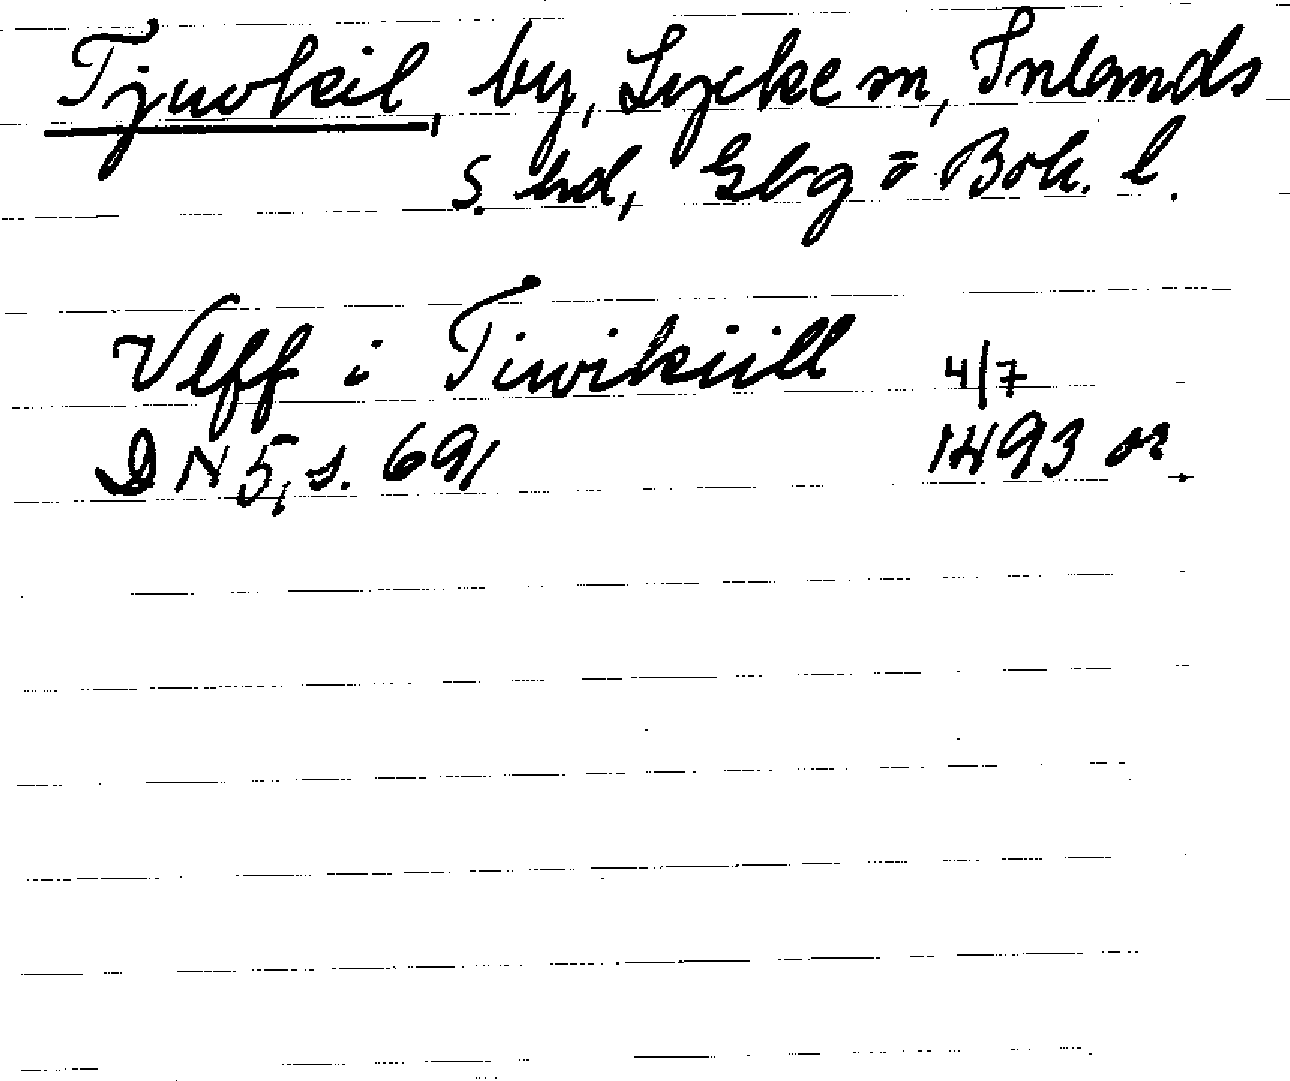 Tjuvkil, by, Lycke sn, Inlands
S. hd, Gbg o Boh. l.
Ulff i Tiwikiill 4/7
DN 5, s. 691 1493 or.